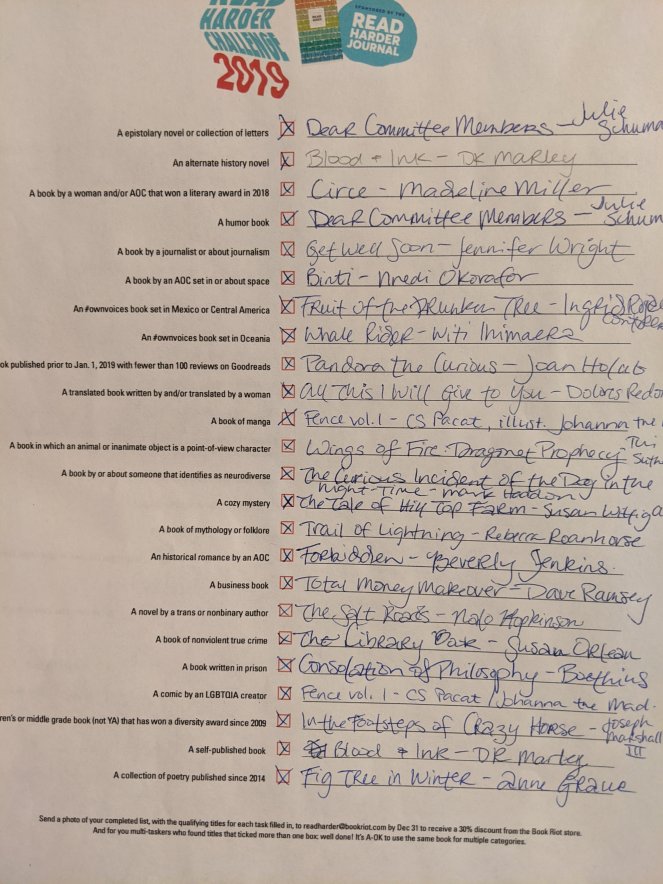 READ
HARDER
CHALLENGE
2019
SPONSORED BY THE
READ
HARDER
JOURNAL
A epistolary novel or collection of letters Dear Committee Members – Julie Schuma
An alternate history novel Blood + Ink – DK Marley
A book by a woman and/or AOC that won a literary award in 2018 Circe – Madeline Miller
A humor book Dear Committee Members – Julie Schum
A book by a journalist or about journalism Get Well Soon – Jennifer Wright
A book by an AOC set in or about space Binti – Nnedi Okorafor
An #ownvoices book set in Mexico or Central America Fruit of the Drunken Tree – Ingrid Roja Contrer
An #ownvoices book set in Oceania Whale Rider – Witi Ihimaera
ok published prior to Jan. 1, 2019 with fewer than 100 reviews on Goodreads Pandora the Curious – Joan Holub
A translated book written by and/or translated by a woman All This I Will Give to You – Dolores Redon
A book of manga Fence vol. 1 – CS Pacat, illust. Johanna the
A book in which an animal or inanimate object is a point-of-view character Wings of Fire: Dragonet Prophecy – Tui Suth
A book by or about someone that identifies as neurodiverse The Curious Incident of the Dog in the
Night-Time – Mark Haddon
A cozy mystery The Tale of Hill Top Farm – Susan Wittig A
A book of mythology or folklore Trail of Lightning – Rebecca Roanhorse
An historical romance by an AOC Forbidden – Beverly Jenkins.
A business book Total Money Makeover – Dave Ramsey
A novel by a trans or nonbinary author The Salt Roads – Nalo Hopkinson
A book of nonviolent true crime The Library Book – Susan Orlean
A book written in prison Consolation of Philosophy – Boethius
A comic by an LGBTQIA creator Fence vol. 1 – CS Pacat / Johanna the Mad.
ren's or middle grade book (not YA) that has won a diversity award since 2009 In the Footsteps of Crazy Horse – Joseph Marshall III
A self-published book Blood + Ink – DK Marley
A collection of poetry published since 2014 Fig Tree in Winter – Anne Graue
Send a photo of your completed list, with the qualifying titles for each task filled in, to readharder@bookriot.com by Dec 31 to receive a 30% discount from the Book Riot store.
And for you multi-taskers who found titles that ticked more than one box: well done! It's A-OK to use the same book for multiple categories.